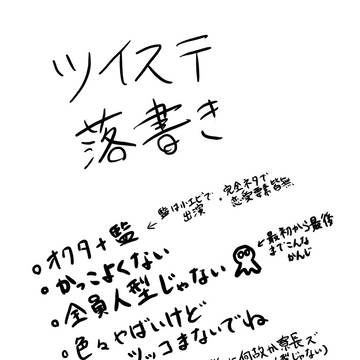 ツイステ
落書き
。オクタ+監
監は小エビで
出演
・完全ネタで
恋愛要素皆無
。かっこよくない
。全員人型じゃない
最初から最後
までこんな
かんじ
。色々やばいけど
ツッコまないでね
何故か寮長ズ
じゃない)